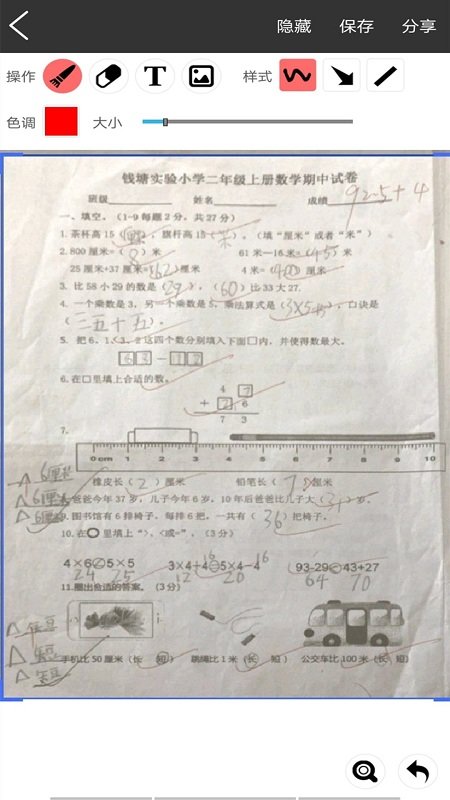 隐藏 保存 分享
操作 T 样式
色调 大小
钱塘实验小学二年级上册数学期中试卷
班级 姓名 成绩 92.5+4
一、填空。(1-9每题2分，共27分)
1. 茶杯高15(厘米)，旗杆高15(米)。(填“厘米”或者“米”)
2. 800厘米=(8)米 61米-16米=(45)米
25厘米+37厘米=(62)厘米 4米=(400)厘米
3. 比58小29的数是(29)，(60)比33大27.
4. 一个乘数是3，另一个乘数是5，乘法算式是(3×5)，口诀是
(三五十五)。
5. 把6、1、3、2这四个数分别填入下面□内，并使得数最大。
63-12
6. 在□里填上合适的数。
4 7
+ 2 6
7 3
7.
0cm 1 2 3 4 5 6 7 8 9 10
6厘米 橡皮长(2)厘米 铅笔长(7)厘米
6厘米 爸爸今年37岁，儿子今年6岁，10年后爸爸比儿子大(31)岁。
6厘米 9. 图书馆有6排椅子，每排6把，一共有(36)把椅子。
10. 在○里填上“>、<或=”。(3分)
4×6 5×5 3×4+4=5×4-4 93-29 43+27
24 25 12 16 20 16 64 70
11. 圈出合适的答案。(3分)
短
短
短
手机比50厘米(长 短) 跳绳比1米(长 短) 公交车比100米(长 短)